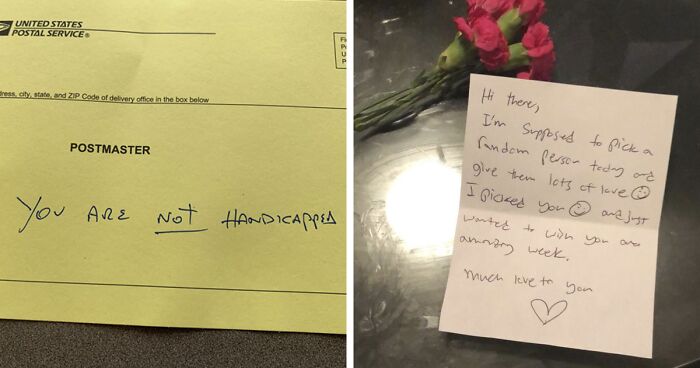 UNITED STATES
POSTAL SERVICE®
ress, city, state, and ZIP Code of delivery office in the box below
POSTMASTER
YOU ARE NOT HANDICAPPED
Hi there,
I'm supposed to pick a
random person today and
give them lots of love ☺
I picked you ☺ and just
wanted to wish you an
amazing week.
much love to you
♡